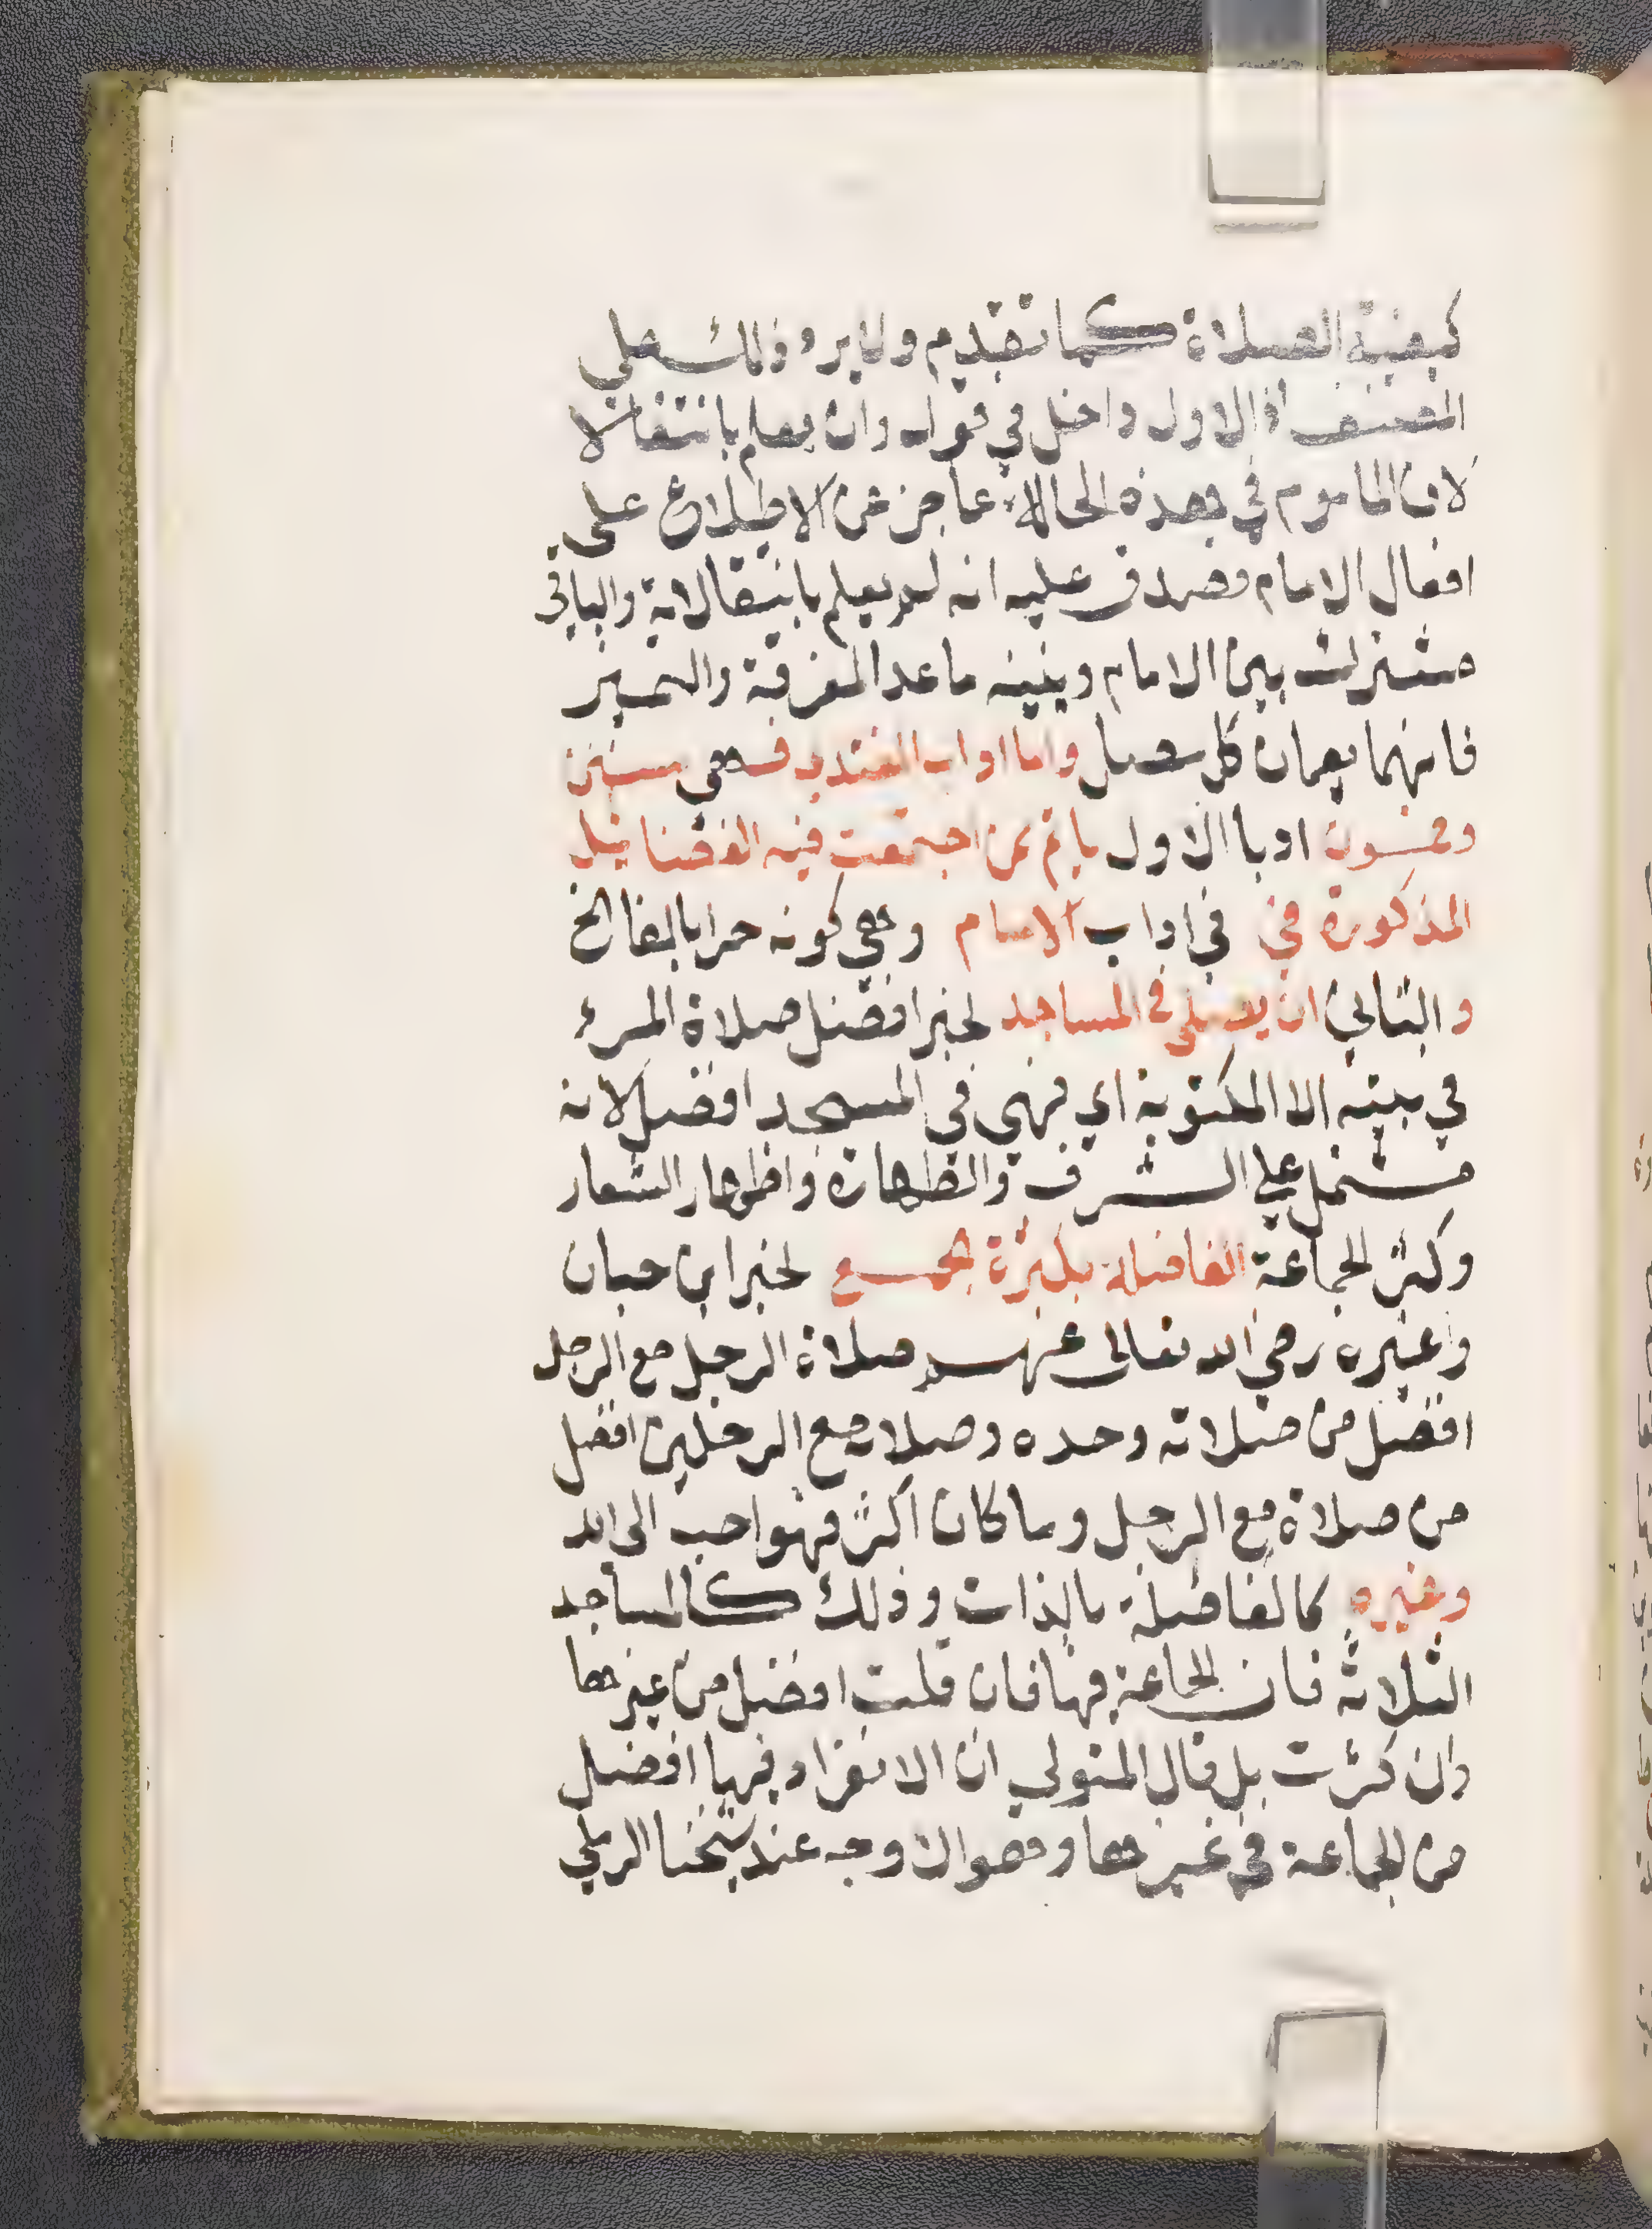 كيفية الصلاة كما تقدم ولا يرد ذلك على
المصنف اذ الاول داخل في قوله وان يعلم بانتقالا
لان الماموم في هذه الحالة عاجز عن الاطلاع على
افعال الامام وصدق عليه انه لم يعلم بانتقالاته والباقي
مشترك بين الامام وبينه ما عدا المعرفة والتمييز
فانهما يعمان كل مصل واما اداب المقتدي فهي ستة
وخمسون ادبا الاول ياتم بمن اجتمعت فيه الفضايل
المذكورة في في اداب الامام وهي كونه حرا بالغا الخ
والثاني ان يصلي في المساجد لخبر افضل صلاة المرء
في بيته الا المكتوبة اي فهي في المسجد افضل لانه
مشتمل على الشرف والطهارة واظهار الشعار
وكثر الجماعة الفاضلة بكثرة الجمع لخبر ابن حبان
وغيره رضي الله تعالى عنهم صلاة الرجل مع الرجل
افضل من صلاته وحده وصلاته مع الرجلين افضل
من صلاة مع الرجل وما كان اكثر فهو احب الى الله
وغيره كالفاضلة بالذات وذلك كالمساجد
الثلاثة فان الجماعة فيها فان قلت افضل من غيرها
وان كثرت بل قال المتولي ان الانفراد فيها افضل
من الجماعة في غيرها وهو الاوجه عند شيخنا الرملي